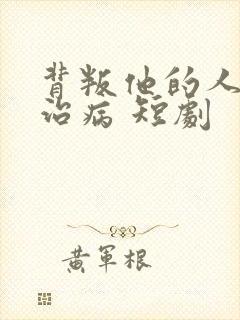 背叛他的人
治病 短劇
黃軍根